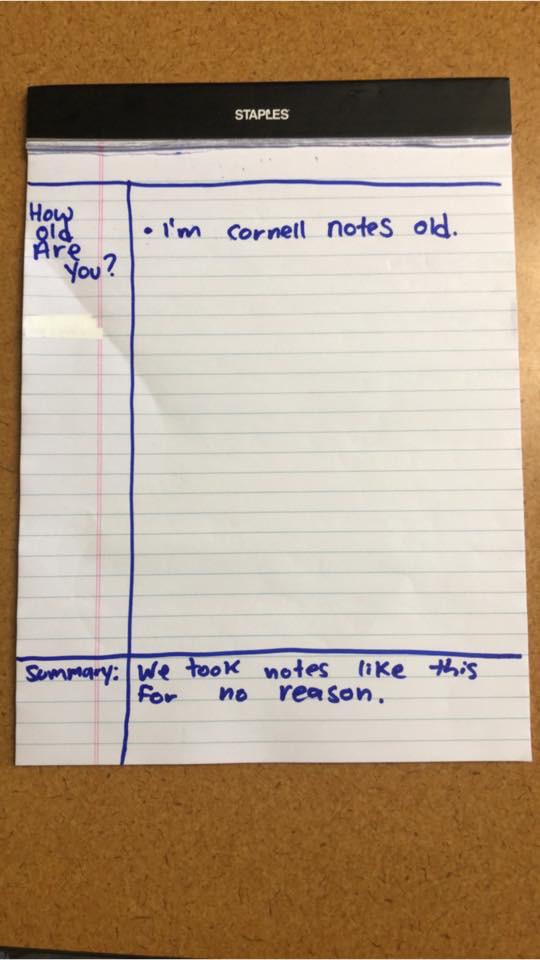 STAPLES
How
old
Are
You?
• I'm cornell notes old.
Summary:
We took notes like this
for no reason.